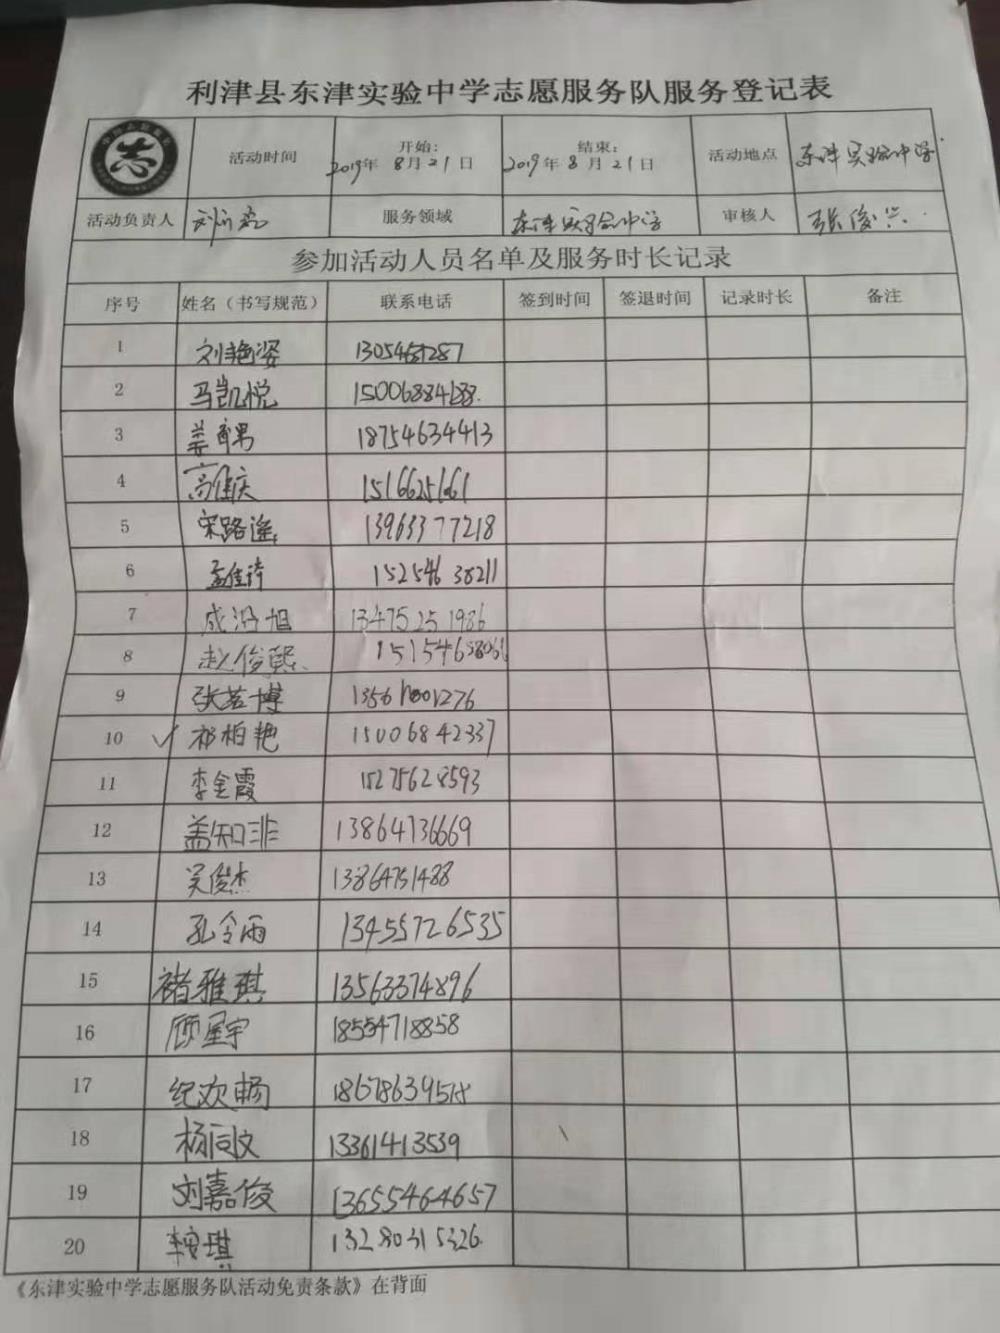 利津县东津实验中学志愿服务队服务登记表
志
活动时间 开始: 2019年 8月21日 结束: 2019年 8月21日 活动地点 东津实验中学
活动负责人 服务领域 东津实验中学 审核人 张俊兴
参加活动人员名单及服务时长记录
序号 姓名（书写规范） 联系电话 签到时间 签退时间 记录时长 备注
1 刘艳姿
2 马凯悦
3 18754634413
4 高佳庆
5 宋路遥 13963377218
6 孟佳诗 15254638211
7 成浴旭 13475251986
8 赵俊熙
9 张茗博
10 ✓ 祁柏艳 15006842337
11 李金霞 15275628593
12 盖知非 13864736669
13 吴俊杰 13864751488
14 孔令雨 13455726535
15 褚雅琪 13563374896
16 顾星宇 18554718858
17 纪欢畅
18 杨同文 13361413539
19 刘嘉俊 13655464657
20 13280315326
《东津实验中学志愿服务队活动免责条款》在背面